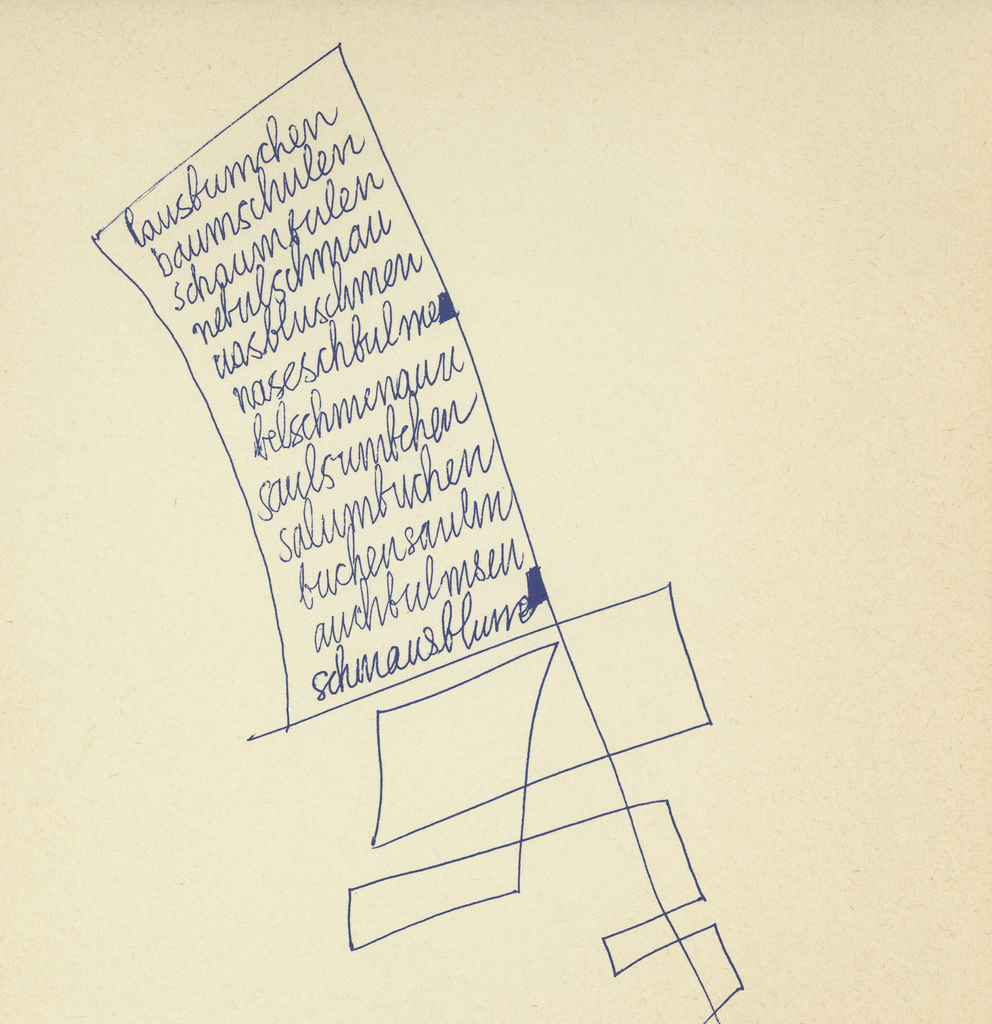 lausbumchen
baumschulen
schaumbulen
nebulschmau
nasbluschmen
naseschbulme
belschmenauu
saulsumbchen
salumbuchen
buchensaulm
auchbulmsen
schmausblume